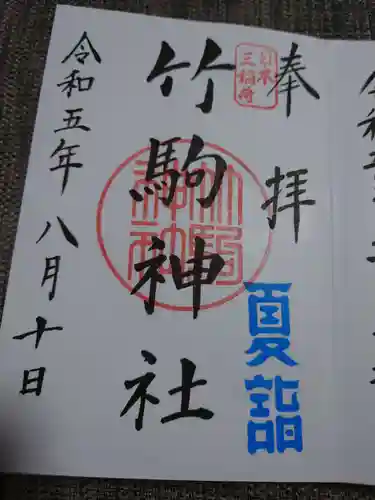 奉拝
日本三稲荷
夏詣
竹駒神社
令和五年八月十日